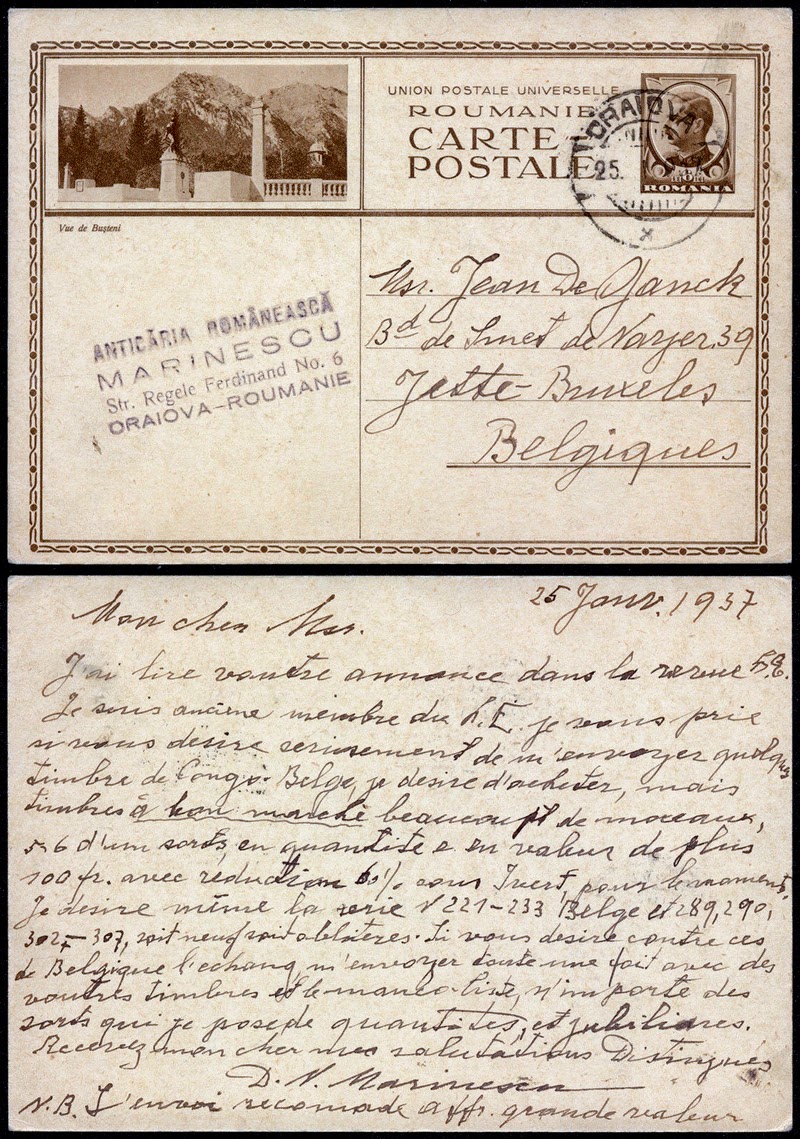 UNION POSTALE UNIVERSELLE
ROUMANIE
CARTE
POSTALE
CRAIOVA
25.
ROMANIA
Vue de Bușteni
Msr. Jean De
Bd de Smet de Nayer 39
Jette-Bruxeles
Belgiques
ANTICĂRIA ROMÂNEASCĂ
MARINESCU
Str. Regele Ferdinand No. 6
CRAIOVA-ROUMANIE
25 Janv. 1937
Mon cher Msr.
J'ai lire voutre annonce dans la revue
Je suis anciene membre du je vous prie
si vous desire seriusement de m'envoyer quelques
timbre de Congo-Belge, je desire d'acheter, mais
timbres à bon marché beaucoupt de moceaux,
5-6 d'un sorts, en quantite e en valeur de plus
100 fr. avec reduction 60% sous Ivert, pour le moment.
Je desire même la serie N 221-233 Belge et 289, 290,
302-307, soit neuf soit oblitères. Si vous desire contre ces
de Belgique l'echang m'envoyer toute une foit avec des
voutres timbres et le manco-liste, n'importe des
sorts qui je posede quantités, et jubiliares.
Recevez mon cher msr salutations Distingues
D. N. Marinescu
N.B. L'envoi recomade affr. grande valeur